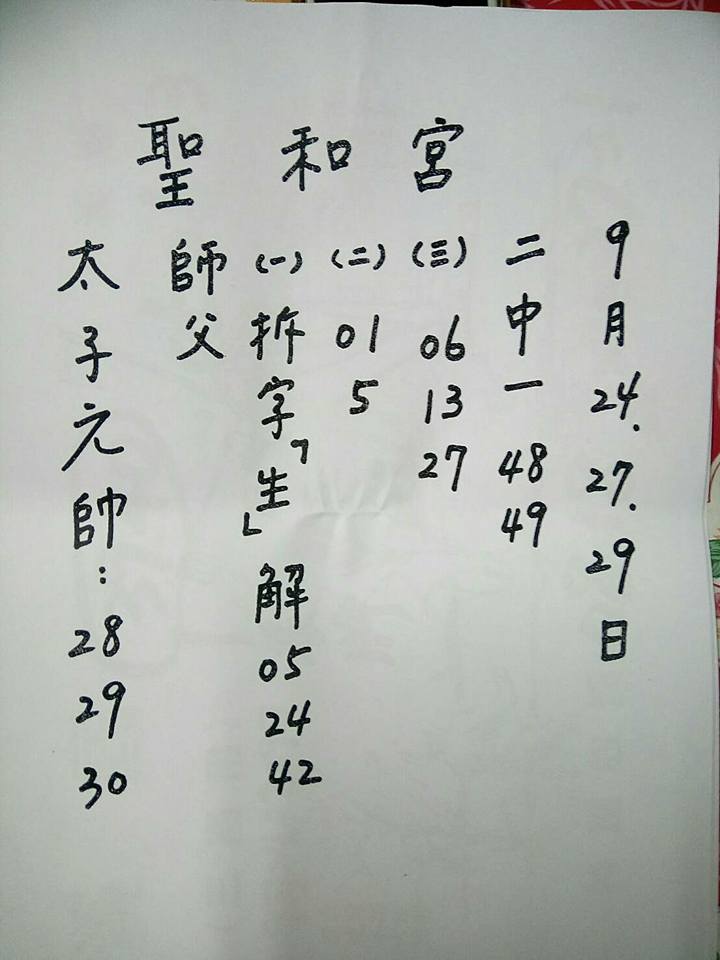 聖和宮
9月24.27.29日
二中一 48 49
(三) 06 13 27
(二) 01 5
師父 (一) 拆字「生」解 05 24 42
太子元帥:28 29 30